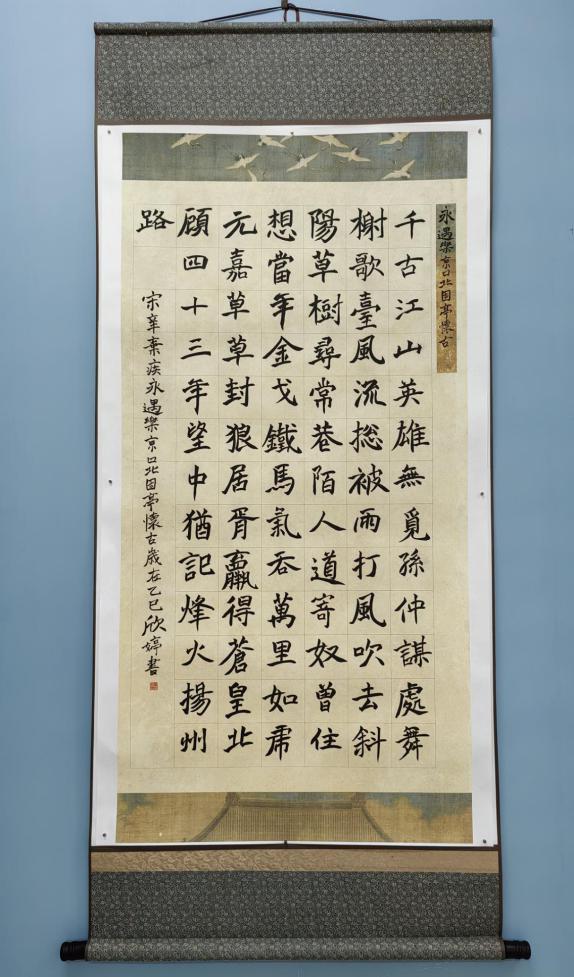 永遇樂京口北固亭懷古
千古江山英雄無覓孫仲謀處舞
榭歌臺風流總被雨打風吹去斜
陽草樹尋常巷陌人道寄奴曾住
想當年金戈鐵馬氣吞萬里如虎
元嘉草草封狼居胥贏得蒼皇北
顧四十三年望中猶記烽火揚州
路
宋辛棄疾永遇樂京口北固亭懷古歲在乙巳欣婷書